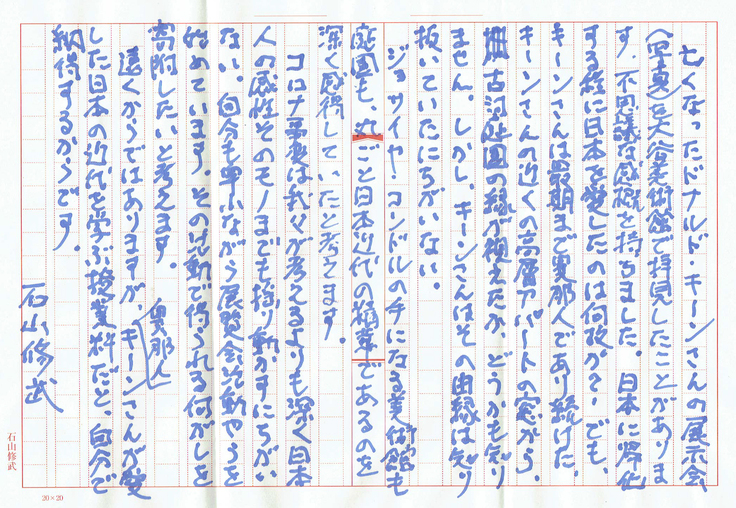 亡くなったドナルド・キーンさんの展示会
(写真)を大谷美術館で拝見したことがありま
す。不思議な感縁を持ちました。日本に帰化
する程に日本を愛したのは何故か？でも、
キーンさんは最期まで異邦人であり続けた。
キーンさんの近くの高層アパートの窓から、
旧古河庭園の緑が視えたか どうかも知り
ません。しかし、キーンさんはその由縁は知り
抜いていたにちがいない。
ジョサイヤ・コンドルの手になる美術館も
庭園も、丸ごと日本近代の精華であるのを
深く感得していたと考えます。
コロナ要変は我々が考えるよりも深く日本
人の感性そのモノまでも揺り動かすにちがい
ない。自分も早ふながら展覧会活動やらを
始めています。その活動で得られる何がしを
寄附したいと考えます。
遠くからではありますが、「異邦人」キーンさんが愛
した日本の近代を学ぶ授業料だと、自分で
納得するからです。
石山修武
石山修武
20×20